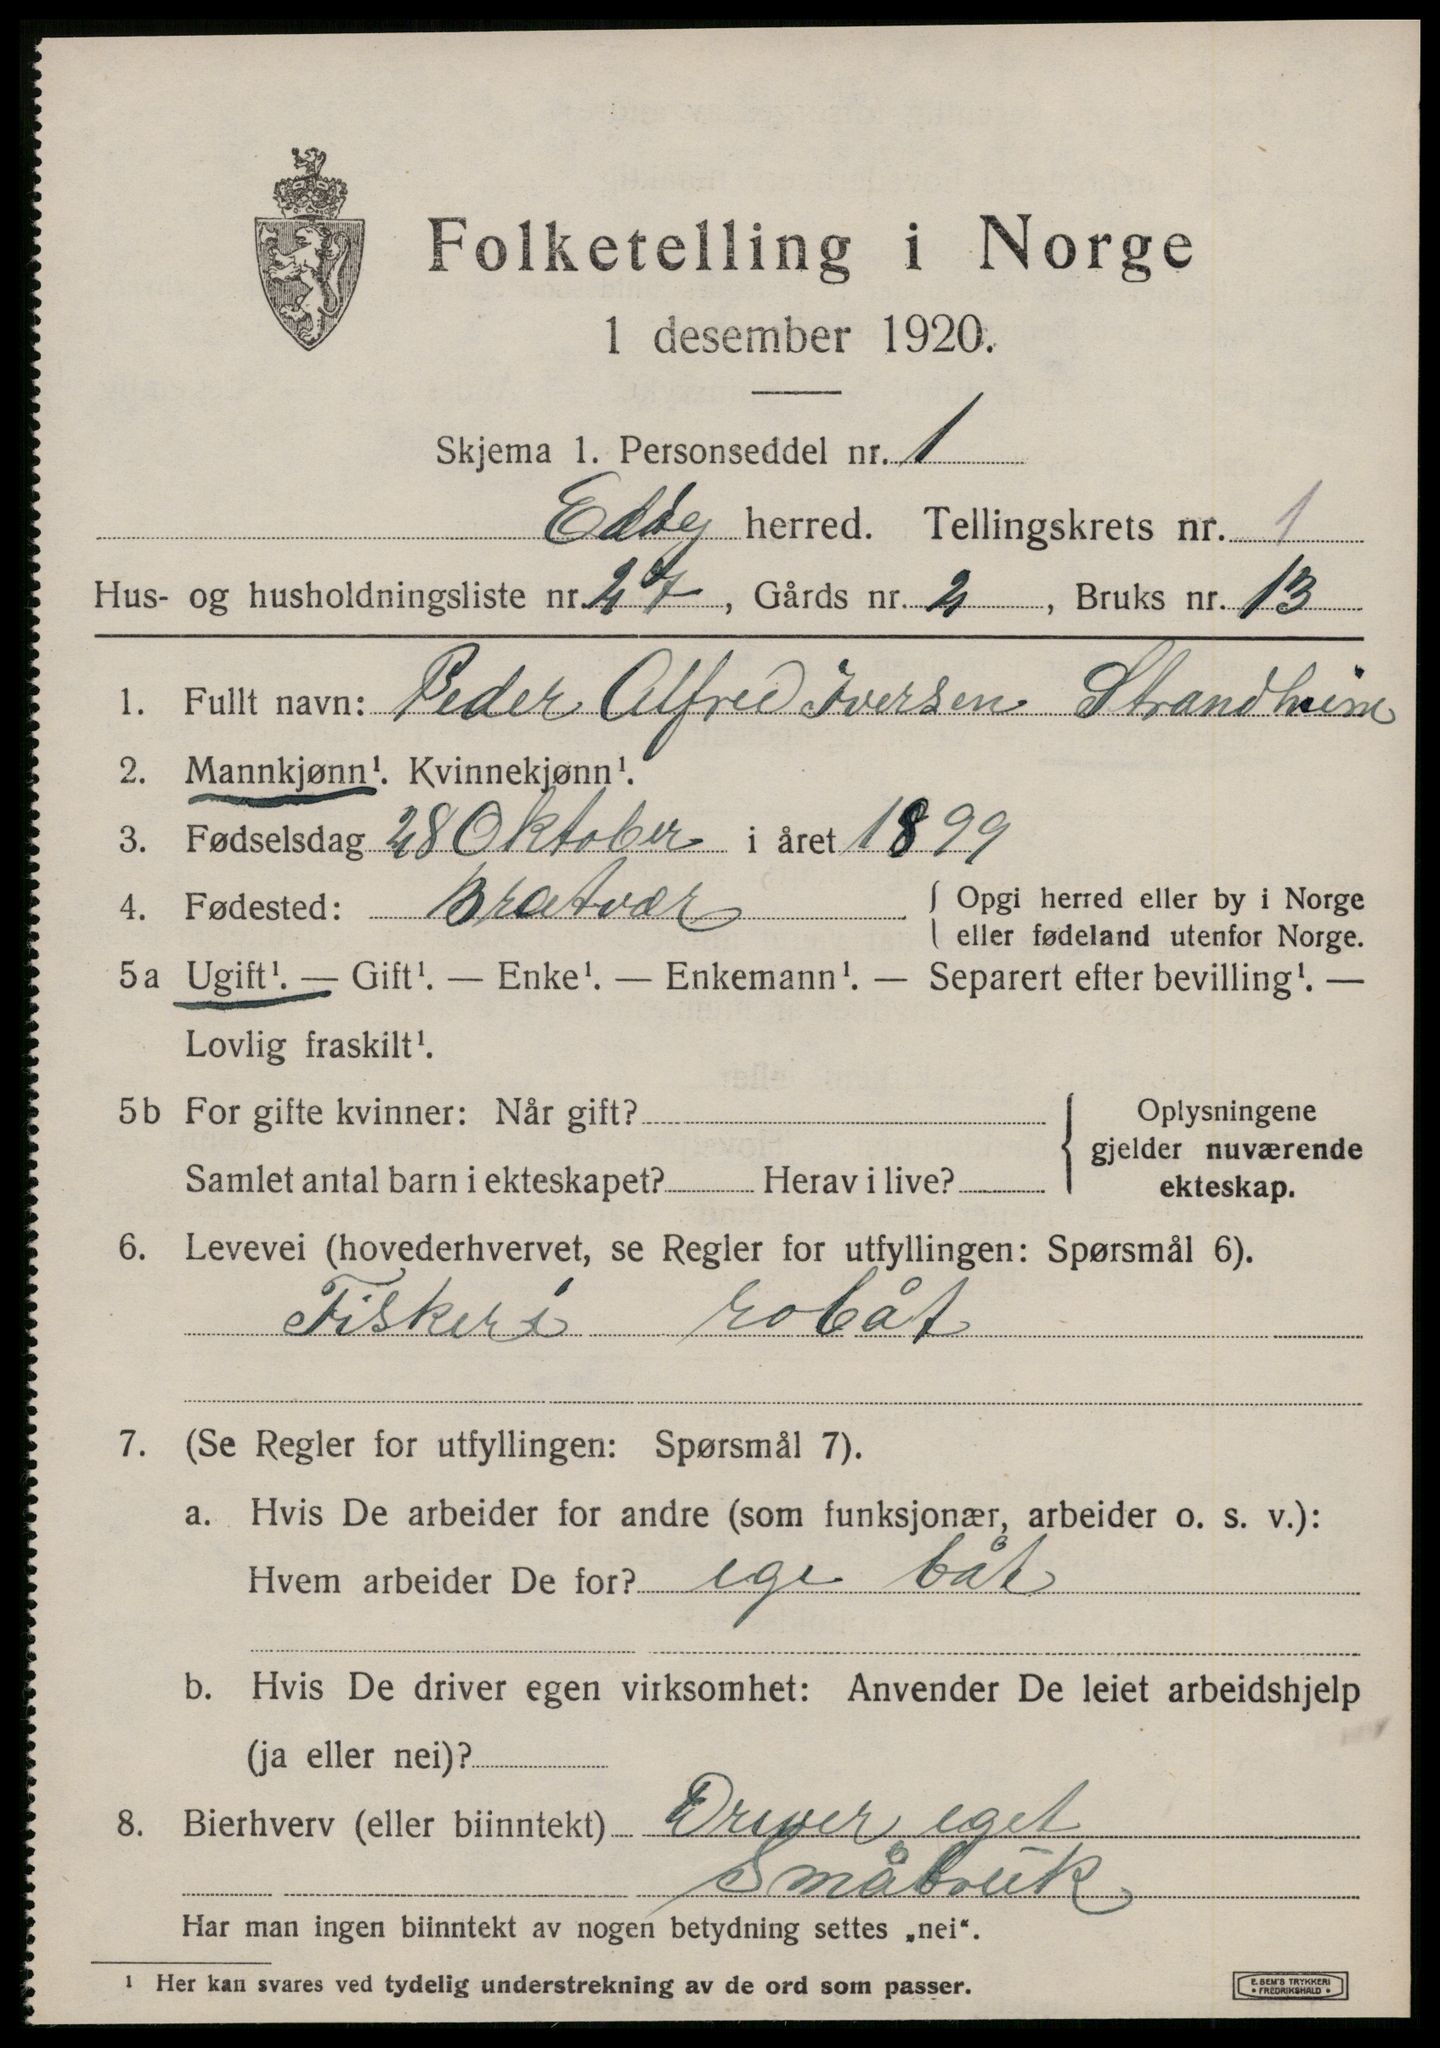 Folketelling i Norge
1 desember 1920.
Skjema 1. Personseddel nr. 1
Edøy herred. Tellingskrets nr. 1
Hus- og husholdningsliste nr. 27, Gårds nr. 2, Bruks nr. 13
1. Fullt navn: Peder Alfred Iversen Strandheim
2. Mannkjønn¹. Kvinnekjønn¹.
3. Fødselsdag 28 Oktober i året 1899
4. Fødested: Bratvær { Opgi herred eller by i Norge
eller fødeland utenfor Norge.
5a Ugift¹. — Gift¹. — Enke¹. — Enkemann¹. — Separert efter bevilling¹. —
Lovlig fraskilt¹.
5b For gifte kvinner: Når gift? { Oplysningene
gjelder nuværende
Samlet antal barn i ekteskapet? Herav i live? ekteskap.
6. Levevei (hovederhvervet, se Regler for utfyllingen: Spørsmål 6).
Fiskeri robåt
7. (Se Regler for utfyllingen: Spørsmål 7).
a. Hvis De arbeider for andre (som funksjonær, arbeider o. s. v.):
Hvem arbeider De for? ege båt
b. Hvis De driver egen virksomhet: Anvender De leiet arbeidshjelp
(ja eller nei)?
8. Bierhverv (eller biinntekt) Driver eget
Småbruk
Har man ingen biinntekt av nogen betydning settes „nei“.
¹ Her kan svares ved tydelig understrekning av de ord som passer.
E. SEM'S TRYKKERI
• FREDRIKSHALD •